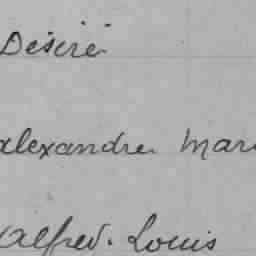 Désiré
alexandre Mar
Alfred. Louis